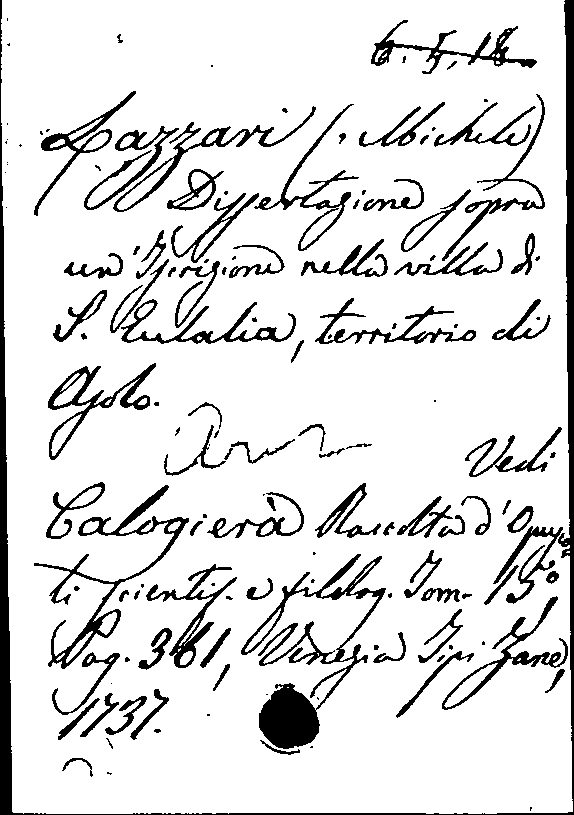 6. 5, 18
Lazzari (, Michele)
Dissertazione sopra
un'Iscrizione nella villa di
S. Eulalia, territorio di
Asolo.
Vedi
Calogierà Raccolta d'Opusco
li scientif. e filolog. Tom. 15°,
Pag. 361, Venezia Tipi Zane,
1737.